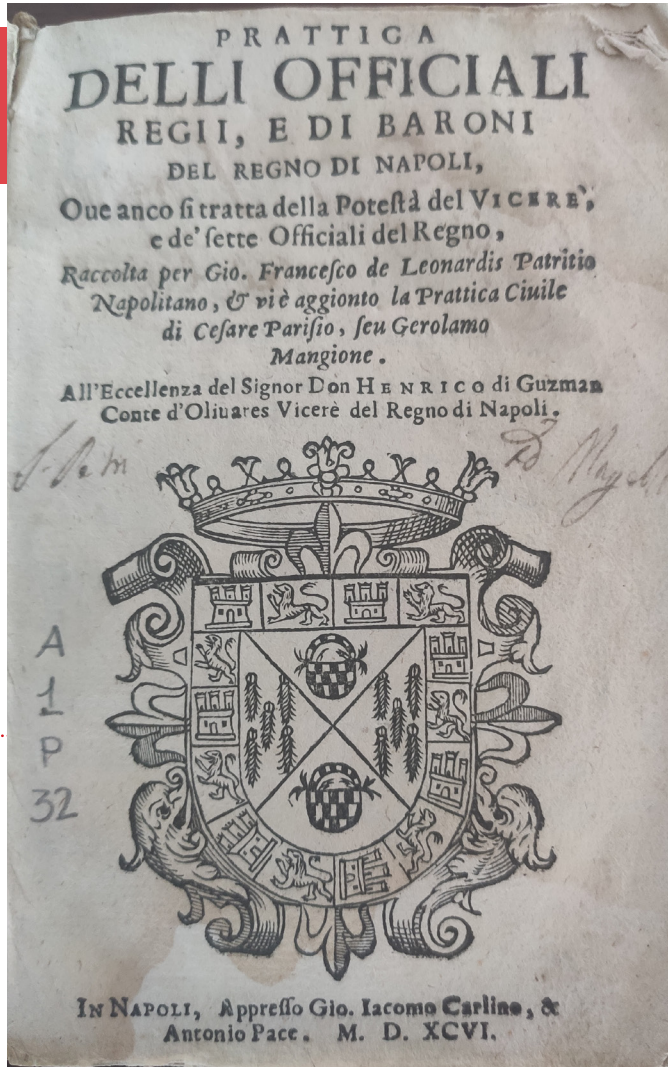 PRATTICA
DELLI OFFICIALI
REGII, E DI BARONI
DEL REGNO DI NAPOLI,
Oue anco ſi tratta della Poteſtà del VICERE',
e de' ſette Officiali del Regno,
Raccolta per Gio. Franceſco de Leonardis Patritio
Napolitano, & vi è aggionto la Prattica Ciuile
di Ceſare Pariſio, ſeu Gerolamo
Mangione.
All'Eccellenza del Signor Don HENRICO di Guzman
Conte d'Oliuares Vicerè del Regno di Napoli.
A
1
P
32
IN NAPOLI, Appreſſo Gio. Iacomo Carlino, &
Antonio Pace. M. D. XCVI.